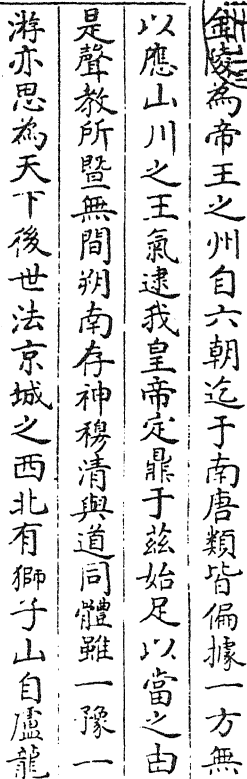 金陵為帝王之州自六朝迄于南唐類皆偏據一方無
以應山川之王氣逮我皇帝定鼎于茲始足以當之由
是聲教所曁無間朔南存神穆清與道同體雖一豫一
游亦思為天下後世法京城之西北有獅子山自盧龍